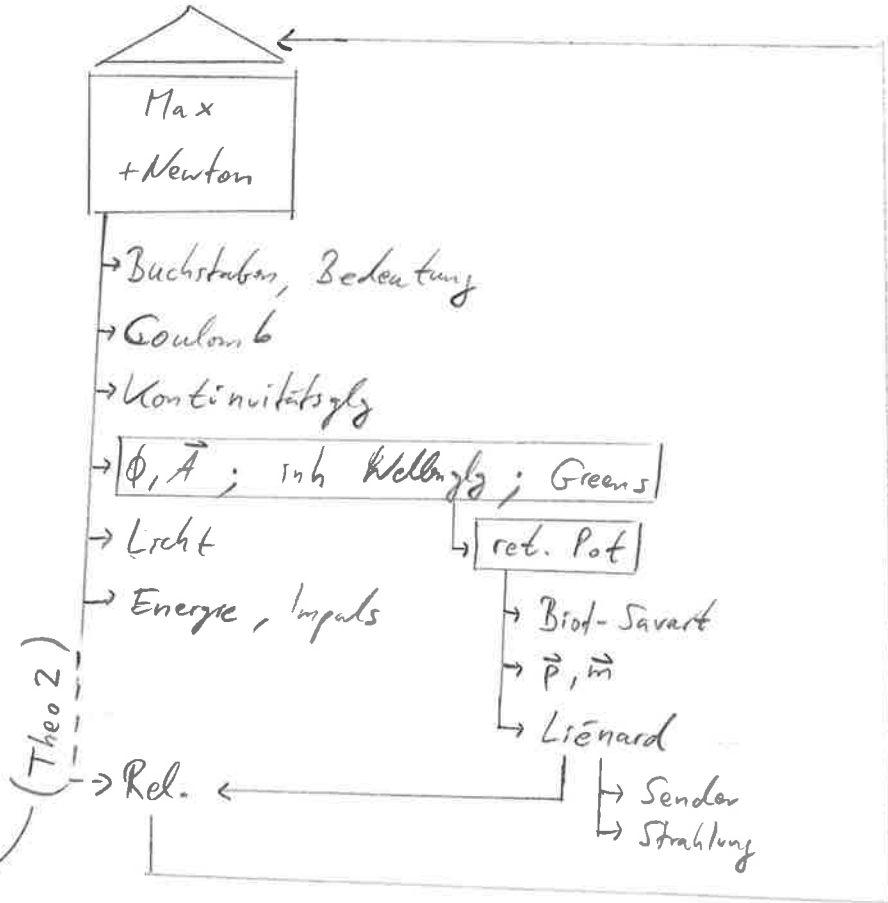 Max
+Newton
→ Buchstaben, Bedeutung
→ Coulomb
→ Kontinuitätsglg
→ ϕ, A⃗ ; inh Wellenglg ; Greens
→ Licht
→ ret. Pot
→ Energie, Impuls
→ Biot-Savart
→ p⃗, m⃗
→ Liénard
(Theo 2)
→ Rel.
→ Sender
→ Strahlung